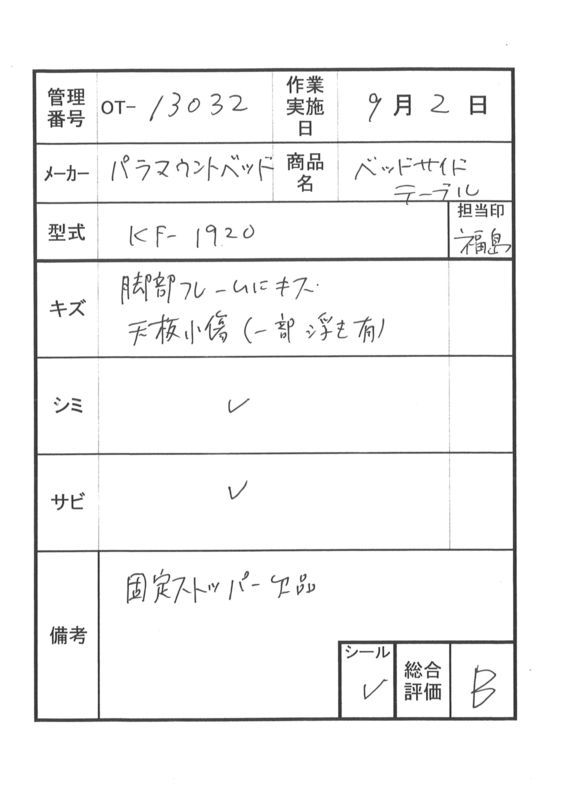 管理番号 OT-13032 作業実施日 9月2日
メーカー パラマウントベッド 商品名 ベッドサイドテーブル
型式 KF-1920 担当印 福島
キズ 脚部フレームにキズ
天板小傷(一部浮き有)
シミ ✓
サビ ✓
備考 固定ストッパー欠品
シール ✓ 総合評価 B